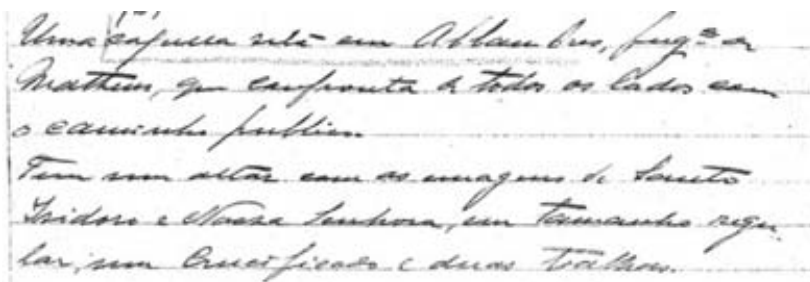 Uma capella sita em Abbambres, freg.ª de
Matheus, que confronta de todos os lados com
o caminho publico
Tem um altar com as imagens de Santo
Isidoro e Nossa Senhora, em tamanho regu-
lar, um Crucificado e duas toalhas.